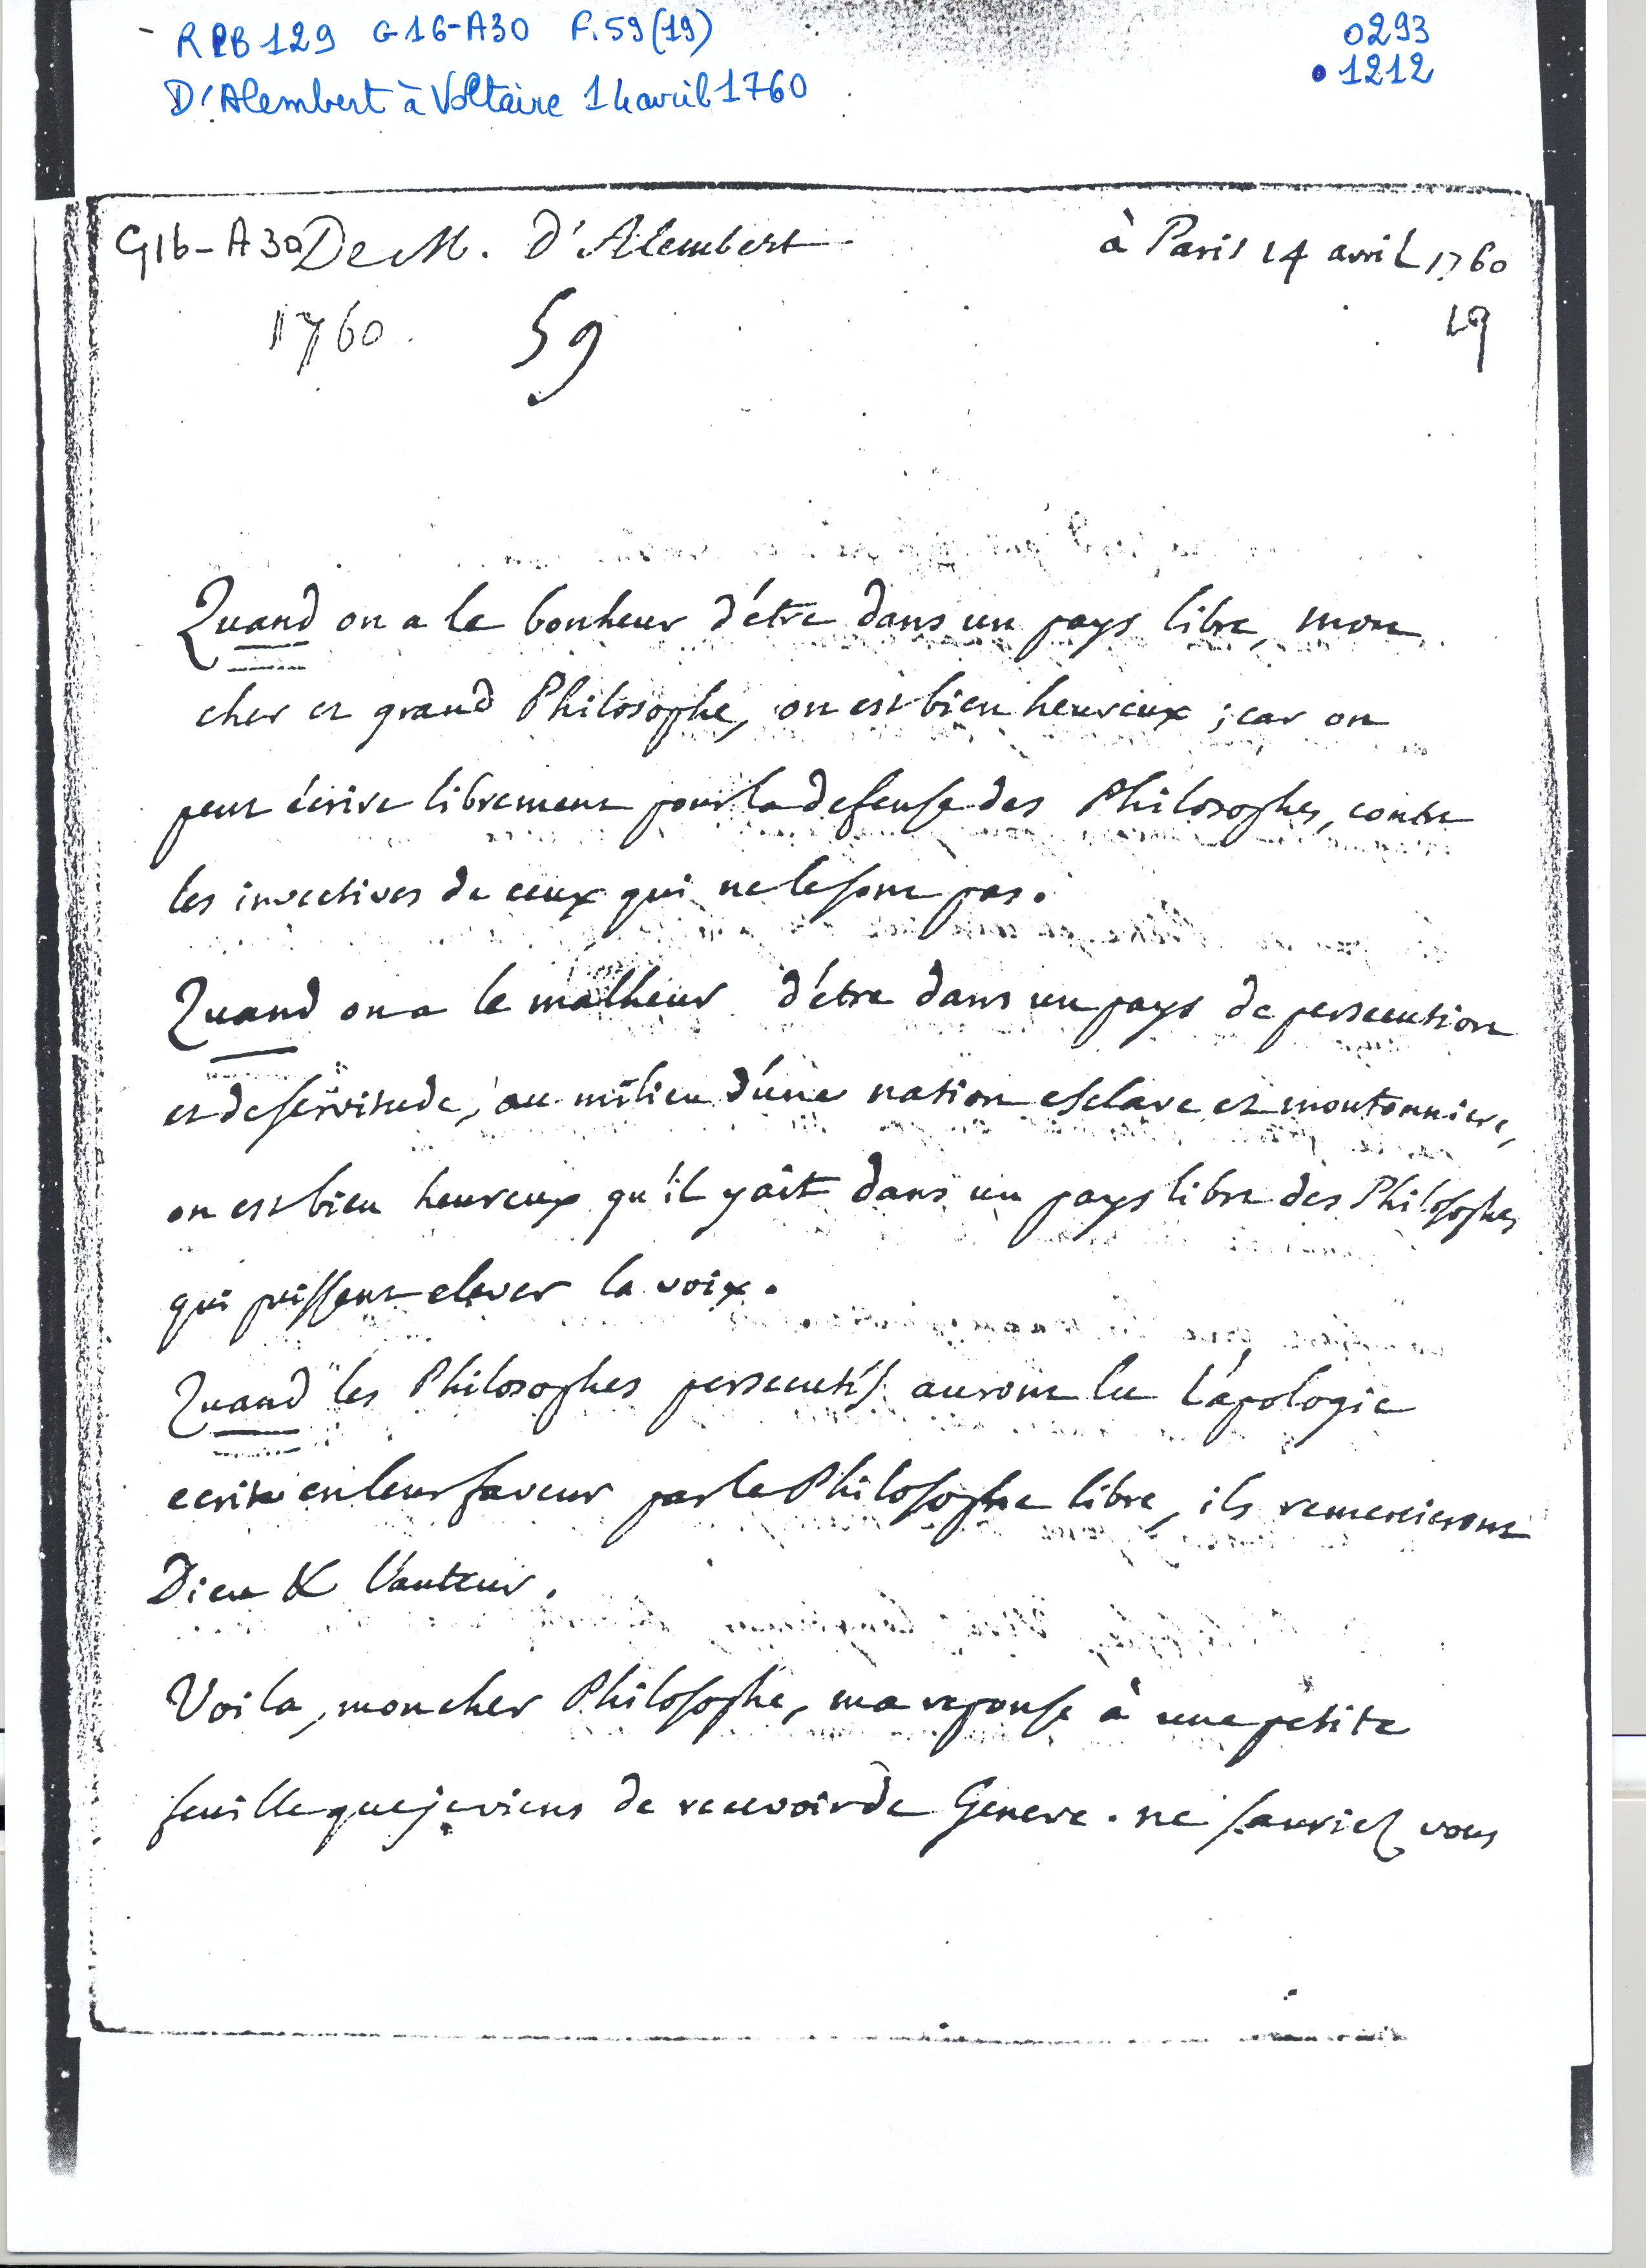 RPB 129 G16-A30 F.59(19)
0293
D'Alembert à Voltaire 14 avril 1760
1212
G16-A30 De M. D'Alembert
à Paris 14 avril 1760
1760. 59
19
Quand on a le bonheur d'être dans un pays libre, mon
cher et grand Philosophe, on est bien heureux ; car on
peut écrire librement pour la defense des Philosophes, contre
les invectives de ceux qui ne le sont pas.
Quand on a le malheur d'être dans un pays de persecution
et de servitude, au milieu d'une nation esclave et moutonniere,
on est bien heureux qu'il y ait dans un pays libre des Philosophes
qui puissent elever la voix.
Quand les Philosophes persecutés auront lu l'apologie
ecrite en leur faveur par le Philosophe libre, ils remercieront
Dieu & l'auteur.
Voila, mon cher Philosophe, ma reponse à une petite
feuille que je viens de recevoir de Geneve. ne sauriez vous